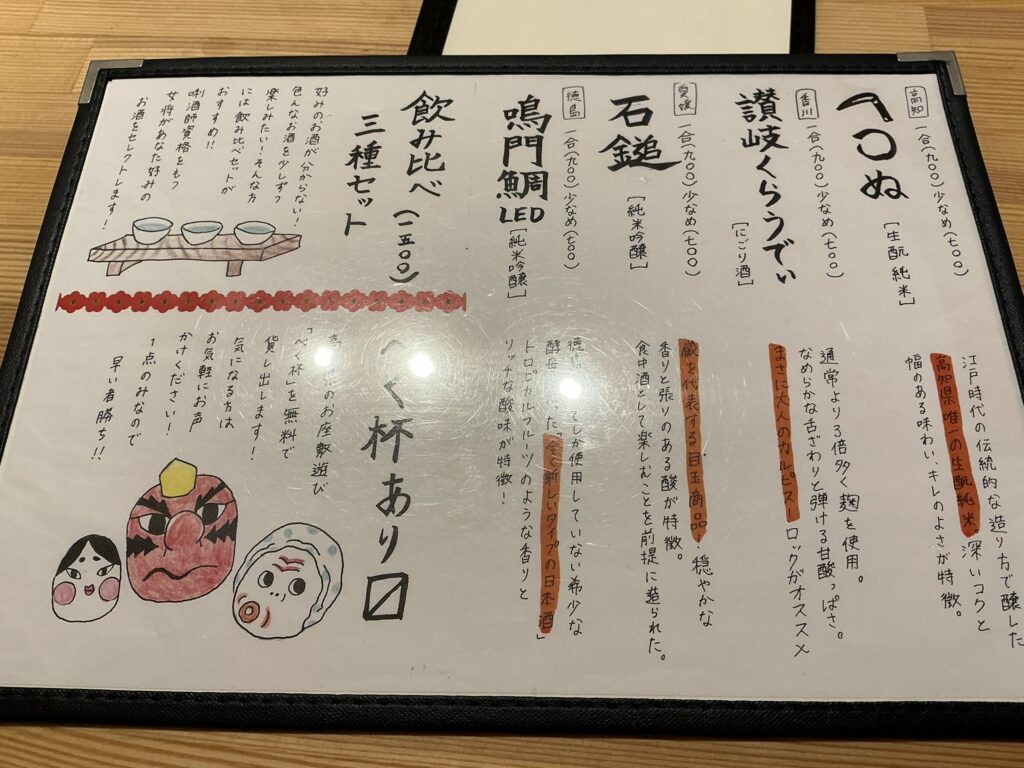 高知 一合(九〇〇)少なめ(七〇〇)
[生酛純米]
江戸時代の伝統的な造り方で醸した
高知県唯一の生酛純米。深いコクと
幅のある味わい、キレのよさが特徴。
香川 一合(九〇〇)少なめ(七〇〇)
讃岐くらうでぃ
[にごり酒]
通常より3倍多く麹を使用。
なめらかな舌ざわりと弾ける甘酸っぱさ。
まさに大人のカルピスー ロックがオススメ
愛媛 一合(九〇〇)少なめ(七〇〇)
石鎚
[純米吟醸]
蔵を代表する目玉商品!穏やかな
香りと張りのある酸が特徴。
食中酒として楽しむことを前提に造られた。
徳島 一合(九〇〇)少なめ(七〇〇)
鳴門鯛
LED
[純米吟醸]
徳島 しか使用していない希少な
酵母 た。全く新しいタイプの日本酒」
トロピカルフルーツのような香りと
リッチな酸味が特徴!
飲み比べ(一五〇〇)
三種セット
好みのお酒が分からない!
色んなお酒を少しずつ
楽しみたい!そんな方
には飲み比べセットが
おすすめ!!
唎酒師資格をもつ
女将があなた好みの
お酒をセレクトします!
べく杯あり〼
高知県のお座敷遊び
「べく杯」を無料で
貸し出します!
気になる方は
お気軽にお声
かけください!
1点のみなので
早い者勝ち!!